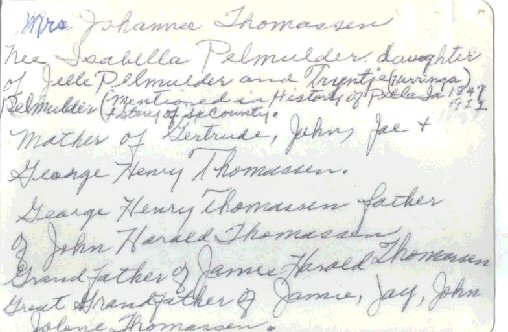 Mrs Johannes Thomassen
nee Isabella Pelmulder daughter
of Jelle Pelmulder and Tryntje (Herringa)
Pelmulder (Mentioned in History of Pella Ia 1847
& Story of Sx County. 1922
Mother of Gertrude, John, Joe +
George Henry Thomassen.
George Henry Thomassen father
of John Harold Thomassen
Grandfather of James Harold Thomassen
Great Grandfather of Jamie, Jay, John
Jolene Thomassen.